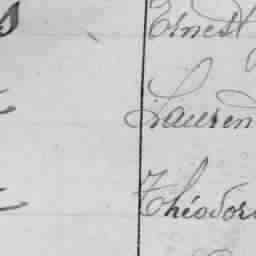 Ernest
Lauren
Théodor